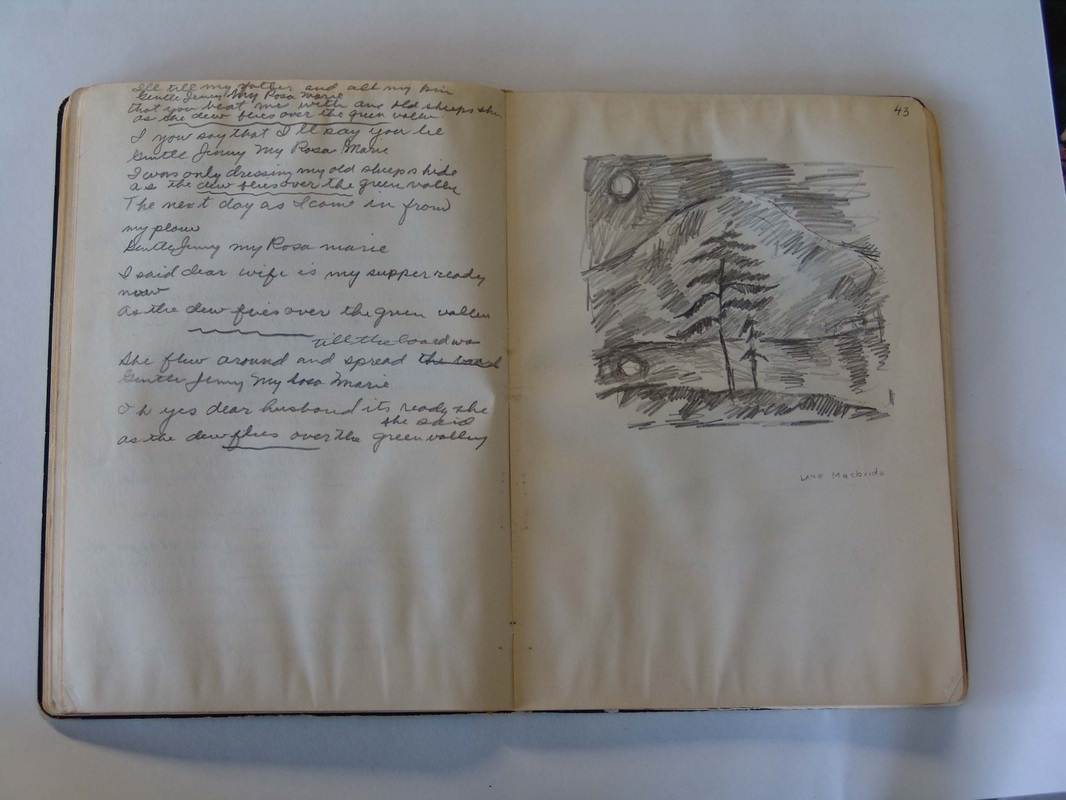 I'll till my father and all my kin
Gentle Jenny My Rosa Marie
that you beat me with an old sheeps
as the dew flies over the green valley
I you say that I'll say you lie
Gentle Jenny My Rosa Marie
I was only dressing my old sheeps hide
as the dew flies over the green valley
The next day as I come in from
my plow
Gentle Jenny my Rosa marie
I said dear wife is my supper ready
now
as the dew flies over the green valley
till the board was
She flew around and spread
Gentle Jenny My Rosa Marie
Oh yes dear husband its ready she
she said
as the dew flies over the green valley
43